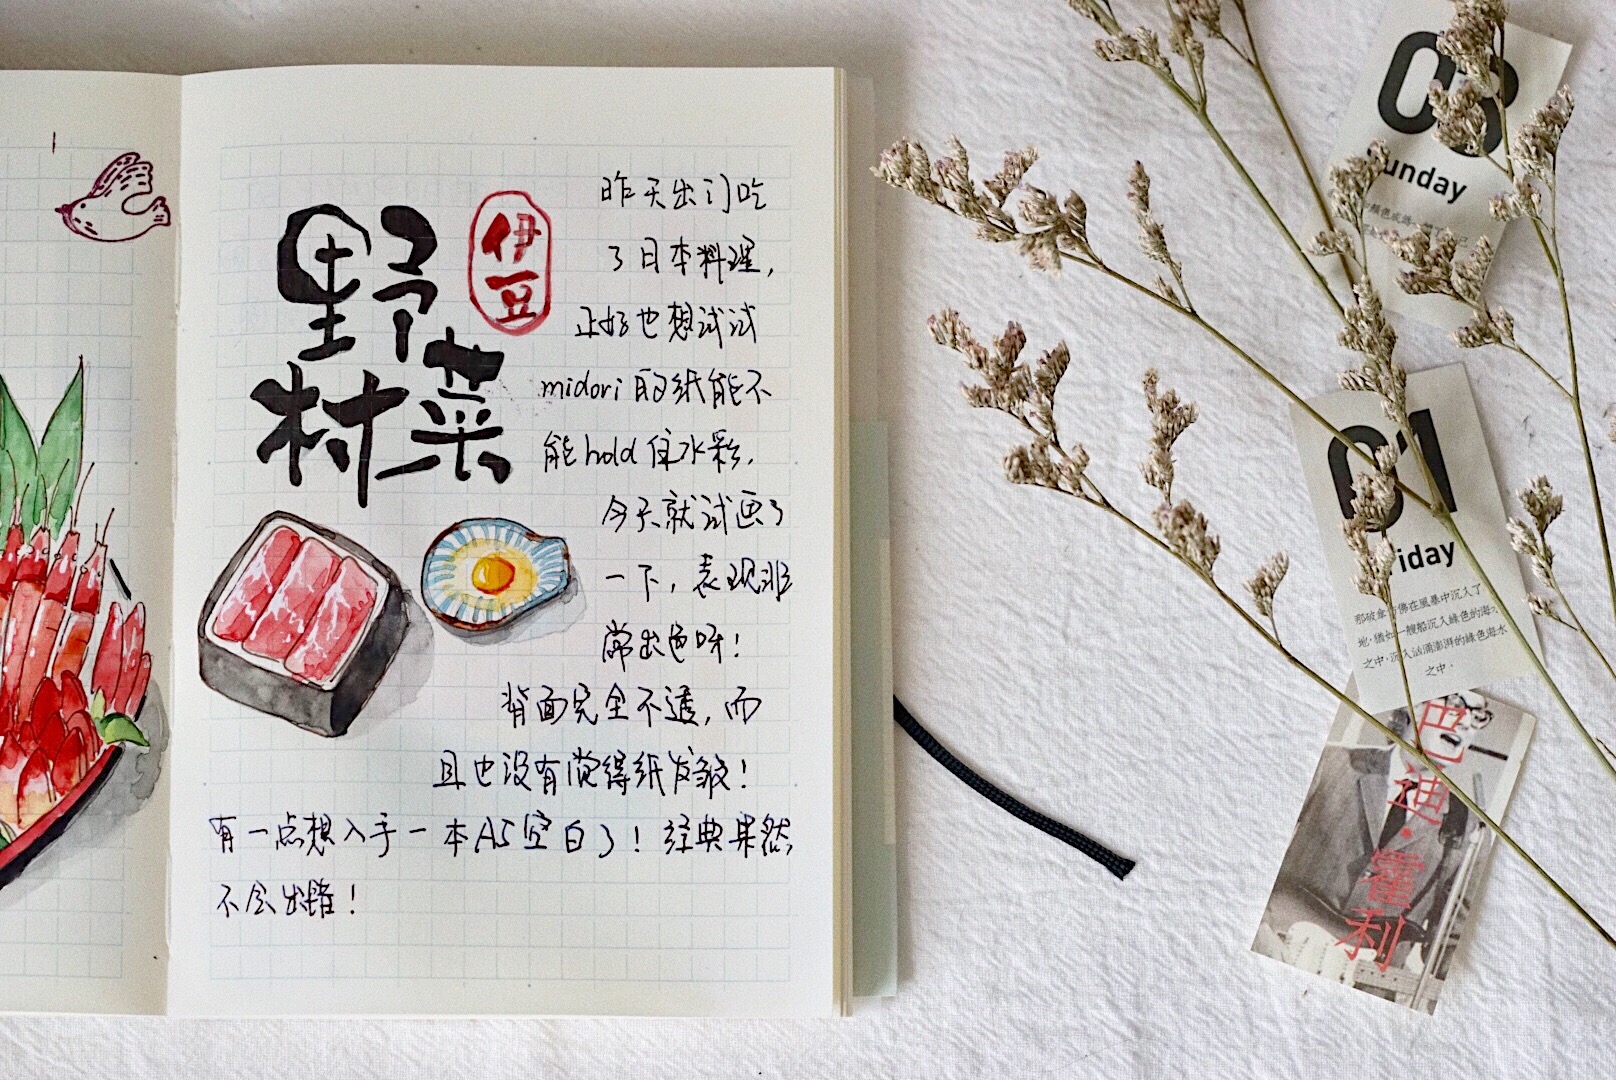 野
村菜
伊
豆
昨天出门吃
了日本料理，
正好也想试试
midori的纸能不
能hold住水彩，
今天就试画了
一下，表现非
常出色呀！
背面完全不透，而
且也没有觉得纸发皱！
有一点想入手一本A5空白了！经典果然
不会出错！
03
Sunday
01
Friday
那破拿
佛在風暴中沉入了
地，猶如一艘船沉入綠色的海水
之中，沉入洶湧澎湃的綠色海水
之中。
巴迪·霍利